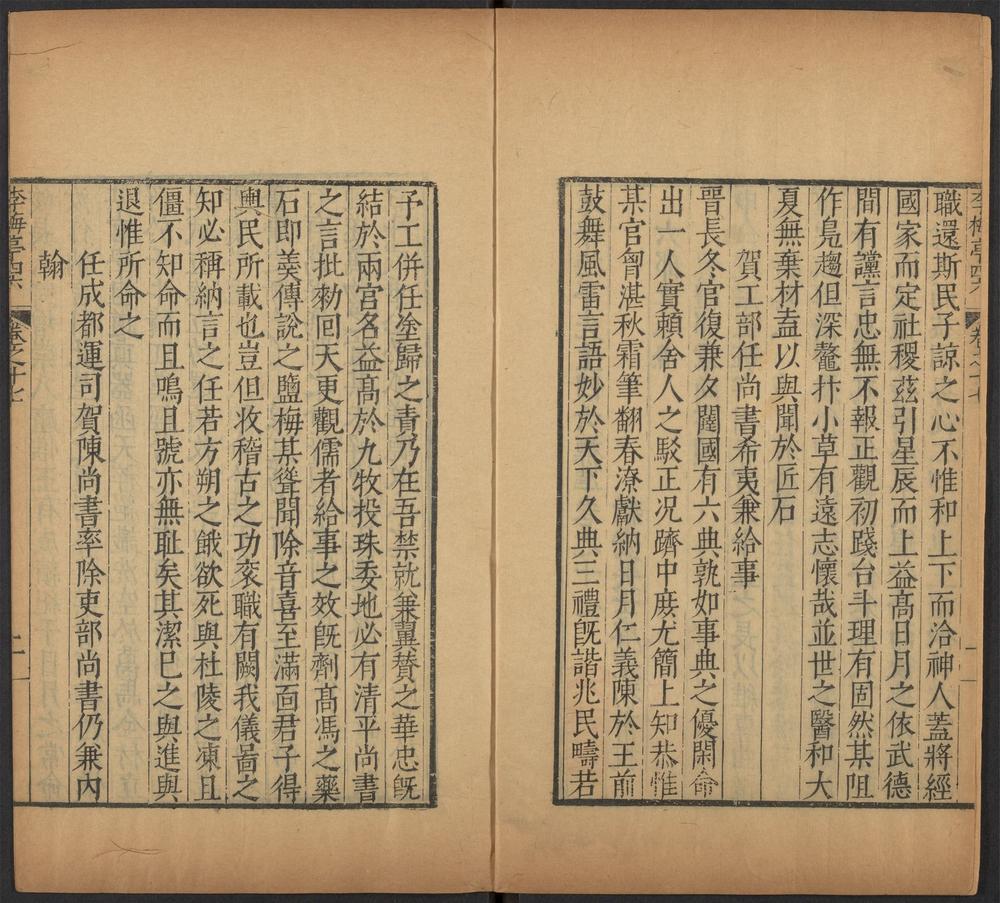 職還斯民子諒之心不惟和上下而洽神人蓋將經
國家而定社稷茲引星辰而上益髙日月之依武德
間有讜言忠無不報正觀初踐台斗理有固然某阻
作鳧趨但深鼇抃小草有遠志懷哉並世之醫和大
夏無棄材盍以與聞於匠石
賀工部任尚書希夷兼給事
晉長冬官復兼夕闥國有六典孰如事典之優閑命
出一人實頼舍人之駁正况躋中庻尤簡上知恭惟
某官胷湛秋霜筆翻春潦獻納日月仁義陳於王前
鼓舞風雷言語妙於天下久典三禮旣諧兆民疇若
李梅亭四六
卷之十七
予工併任塗歸之青乃在吾禁就兼翼賛之華忠旣
結於兩宫名益髙於九牧投珠委地必有清平尚書
之言批勑回天更觀儒者給事之效旣劑髙馮之藥
石即羙傳說之鹽梅其聳聞除音喜至滿靣君子得
輿民所載也豈但收稽古之功衮職有闕我儀啚之
知必稱納言之任若方朔之餓欲死與杜陵之凍且
僵不知命而且嗚且號亦無耻矣其潔已之與進與
退惟所命之
任成都運司賀陳尚書率除吏部尚書仍兼内
翰
李梅亭四六
卷之十七
二